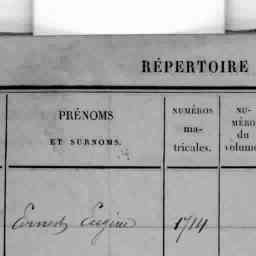 RÉPERTOIRE
PRÉNOMS
ET SURNOMS.
NUMÉROS
ma-
tricales.
NU-
MÉRO
du
volume
Ernest Eugène
1714